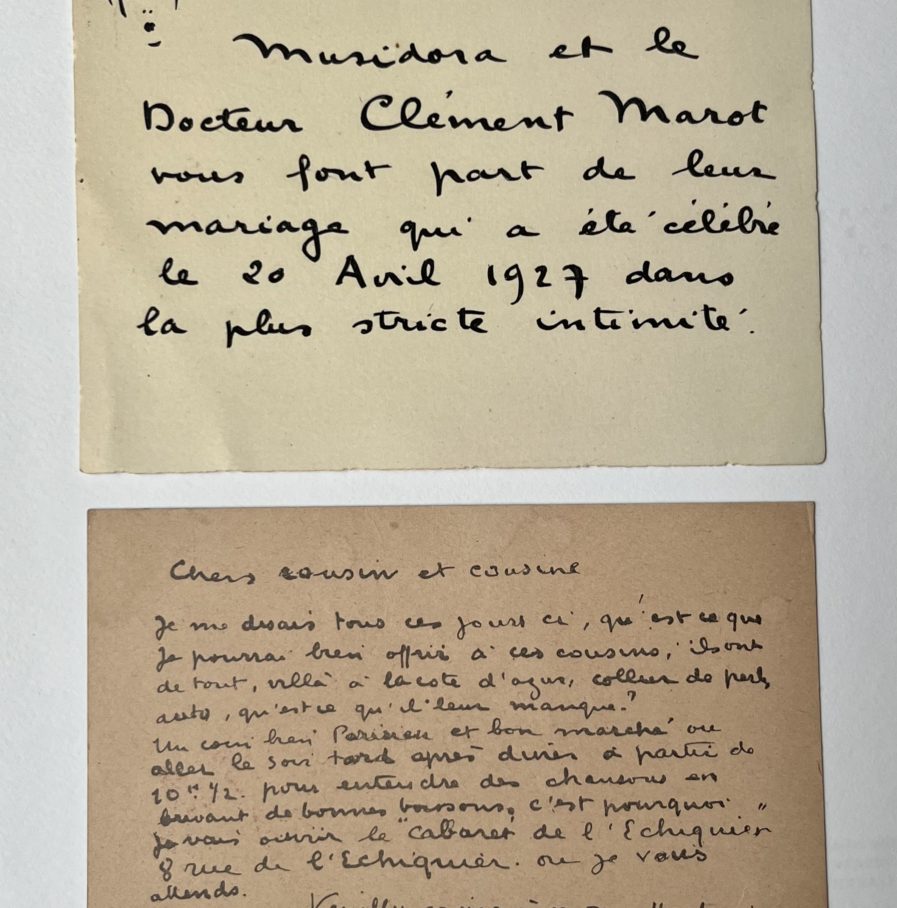 Musidora et le
Docteur Clément Marot
vous font part de leur
mariage qui a été célébré
le 20 Avril 1927 dans
la plus stricte intimité.
Chers cousin et cousine
Je me disais tous ces jours ci, qu'est ce que
Je pourrai bien offrir à ces cousins, ils ont
de tout, villa à la cote d'azur, collier de perles
auto, qu'est ce qu'il leur manque?
Un coin bien Parisien et bon marché ou
aller le soir tard après diner à partir de
10 H 1/2. pour entendre des chansons en
buvant de bonnes boissons, c'est pourquoi
Je vais ouvrir le "Cabaret de l'Echiquier"
8 rue de l'Echiquier. ou je vous
attends.